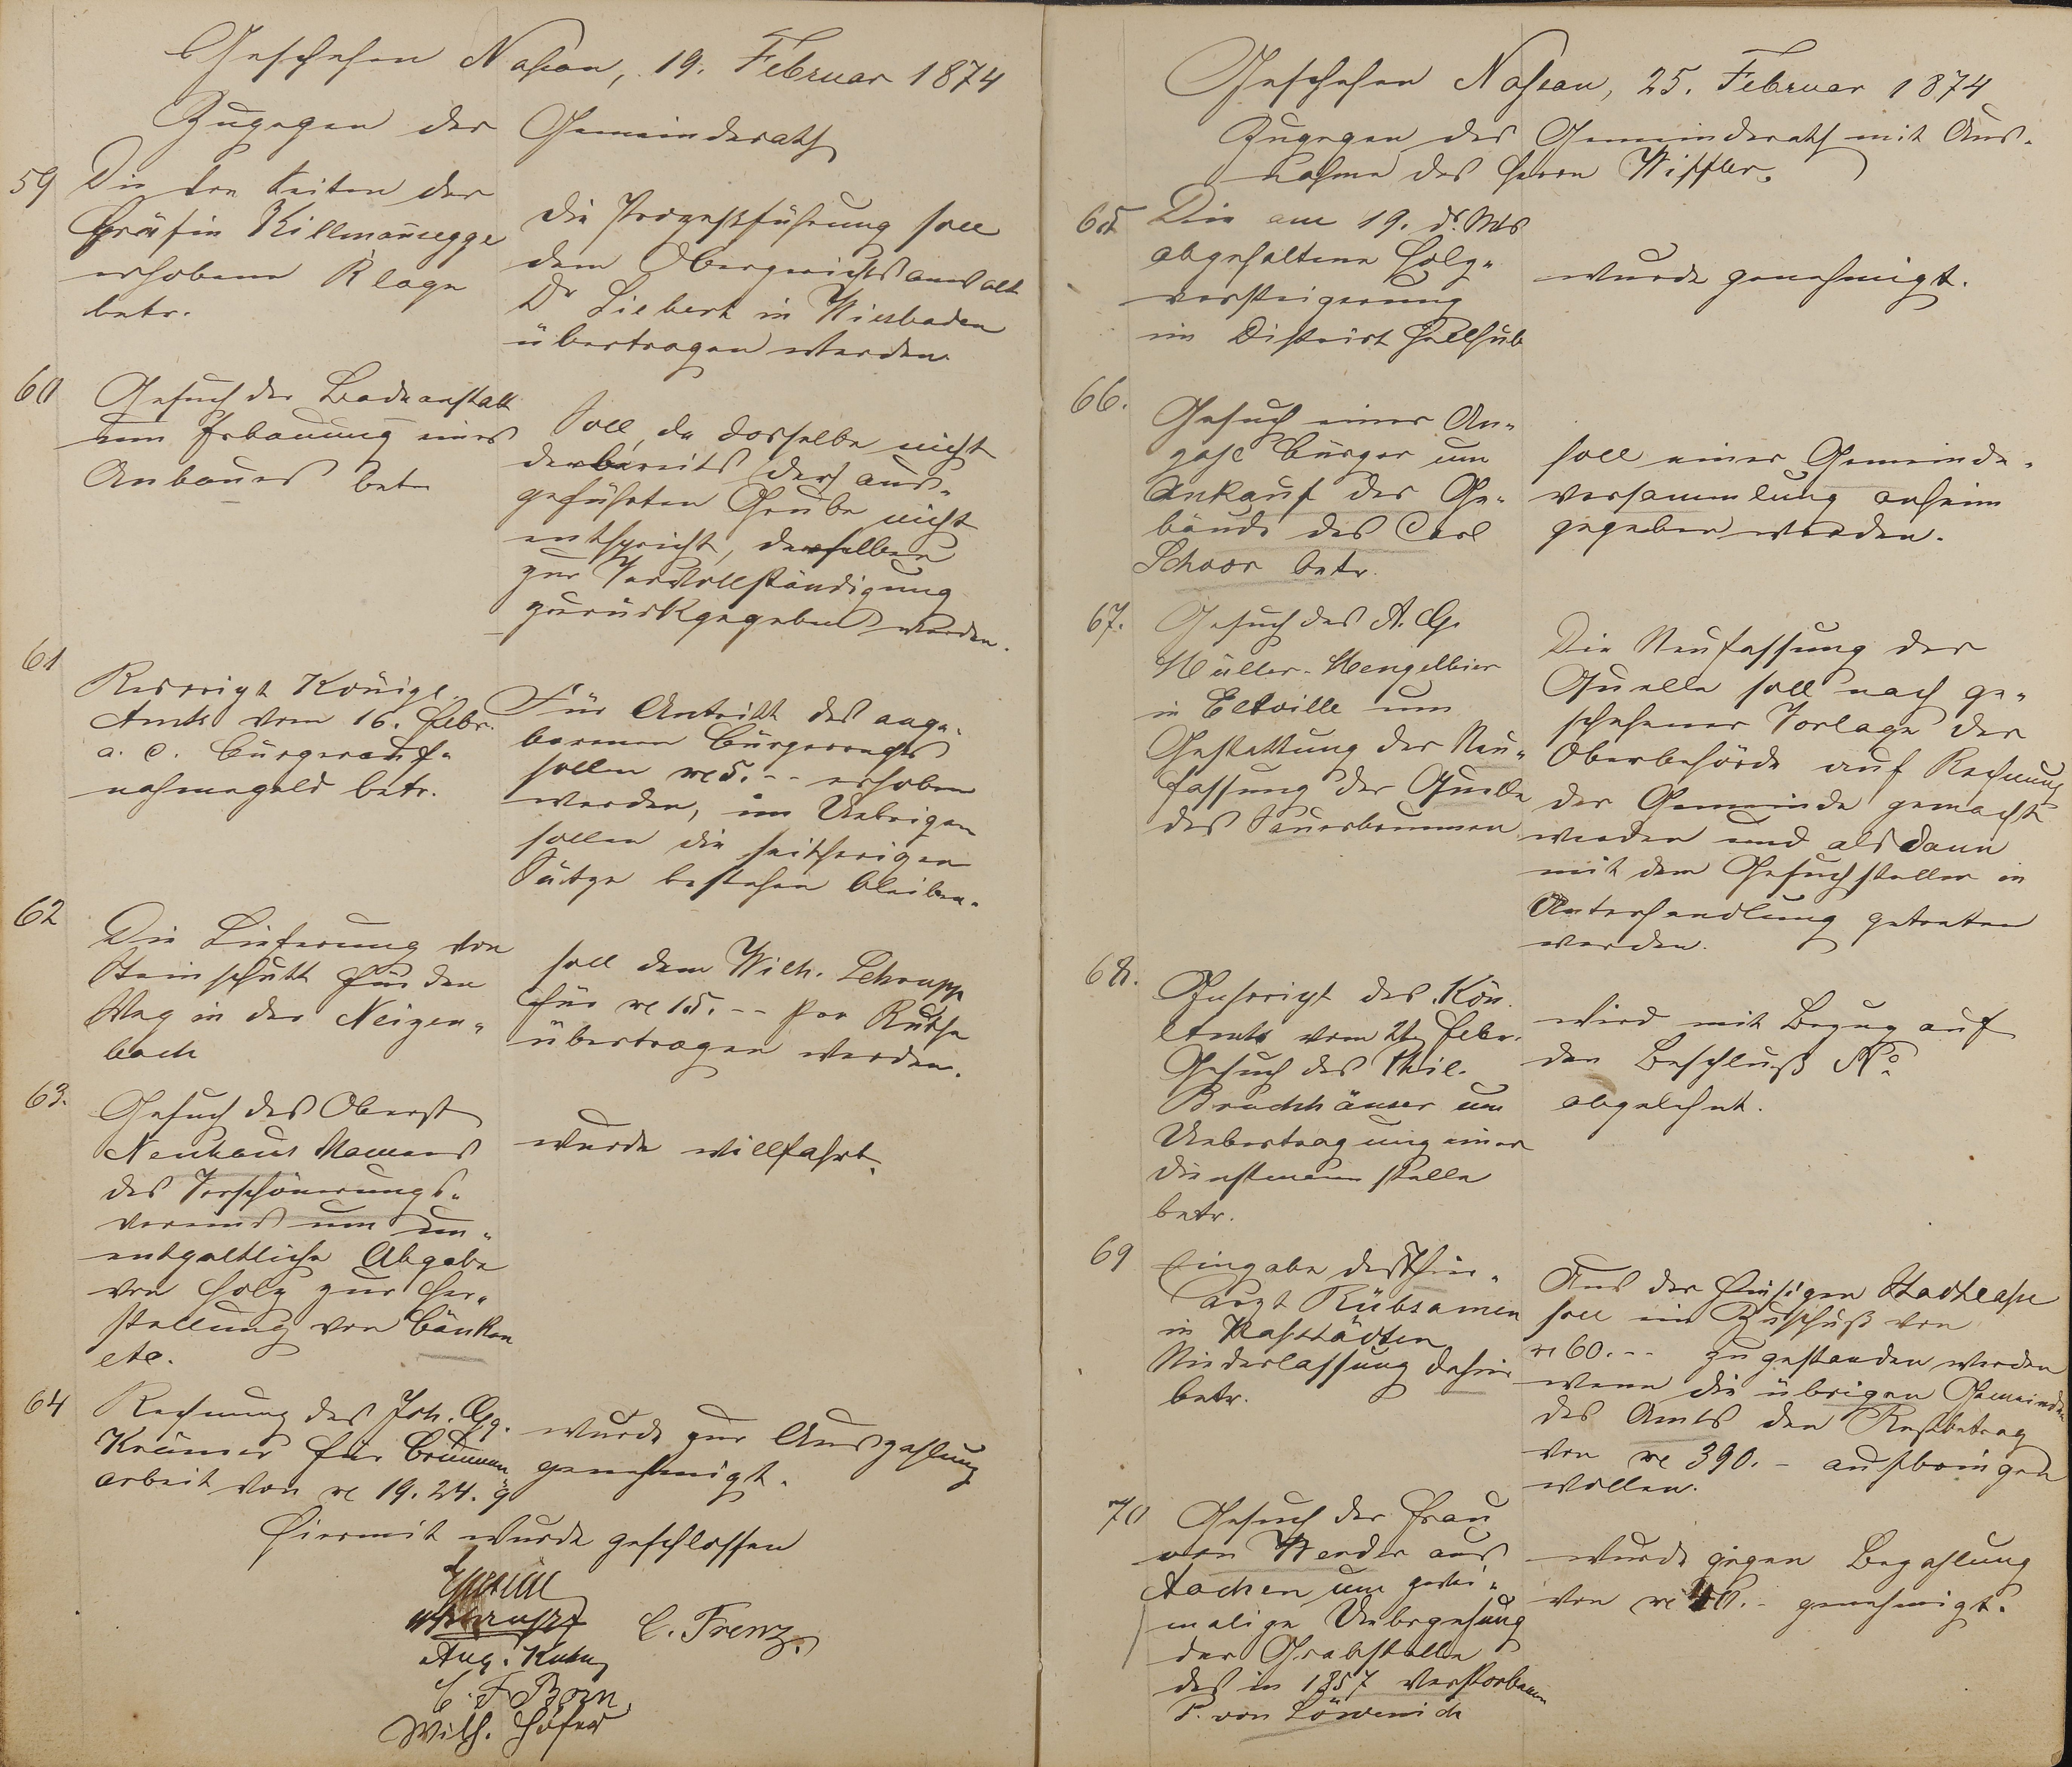 Geschehen Nassau, 19. Februar 1874
Zugegen der Gemeinderath
59
Die von Seiten der
Gräfin Killmansegge
erhobene Klage
betr.
Die Prozeßführung soll
dem Obergerichtsanwalt
Dr Siebert in Wiesbaden
übertragen werden.
60
Gesuch der Badeanstalt
um Erbauung eines
Anbaues betr.
Soll, da dasselbe nicht
der bereits aus-
geführten Grube nicht
entspricht, derselben
zur Vervollständigung
zurückgegeben werden.
61
Rescript Königl.
Amts vom 16. Febr.
a. c. Bürgerauf-
nahmegeld betr.
Für Antritt des ange-
borenen Bürgerrechts
sollen 5.-- erhoben
werden, im Uebrigen
sollen die seitherigen
Sätze bestehen bleiben.
62
Die Lieferung von
Steinschutt für den
Weg in der Neizen-
bach
soll dem Wilh. Schrupp
für 15.-- per Ruthe
übertragen werden.
63.
Gesuch des Oberst
Neuhaus Namens
des Verschönerungs-
vereins um un-
entgeltliche Abgabe
von Holz zur Her-
stellung von Bänken
etc.
wurde willfahrt.
64
Rechnung des Joh. Gg.
Krämer für Brunnen-
arbeit von 19.24.
wurde zur Auszahlung
genehmigt.
Hiermit wurde geschlossen
C. Frenz.
Aug. Kuhn
C. F. Born
Wilh. Höfer
Geschehen Nassau, 25. Februar 1874
Zugegen der Gemeinderath mit Aus-
nahme des Herrn
65
Die am 19. ds. Mts
abgehaltene Holz-
versteigerung
im District Hallhub
wurde genehmigt.
66.
Gesuch einer An-
zahl Bürger um
Ankauf der Ge-
bäude des Carl
Schoor betr.
soll einer Gemeinde-
versammlung anheim
gegeben werden.
67.
Gesuch des A. G.
Müller-Mengelbier
in Eltville um
Gestattung der Neu-
fassung der Quelle
des Sauerbrunnen
Die Neufassung der
Quelle soll nach ge-
schehener Vorlage der
Oberbehörde auf Rechnung
der Gemeinde gemacht
werden und alsdann
mit dem Gesuchsteller in
Unterhandlung getreten
werden.
68.
Zuschrift des Kön.
Amts vom 21 Febr.
Gesuch des Phil.
Bruchhäuser um
Uebertragung einer
Dienstmannstelle
betr.
wird mit Bezug auf
den Beschluß No
abgelehnt.
69
Eingabe des Thier-
arzt Rübsamen
in Nastätten
Niederlassung dahier
betr.
Aus der hiesigen Stadtcasse
soll ein Zuschuß von
60.-- zugestanden werden
wenn die übrigen Gemeinden
des Amts den Restbetrag
von 390.- aufbringen
wollen.
70
Gesuch der Frau
von Werder aus
Aachen um zwei-
malige Uebergehung
der Grabstelle
des in 1857 verstorbenen
P. von Löwenich
wurde gegen Bezahlung
von genehmigt.